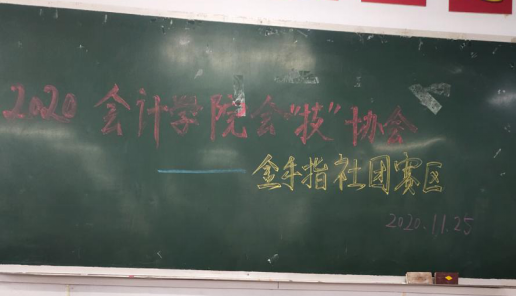 2020 会计学院会“技”协会
金手指社团赛区
2020.11.25